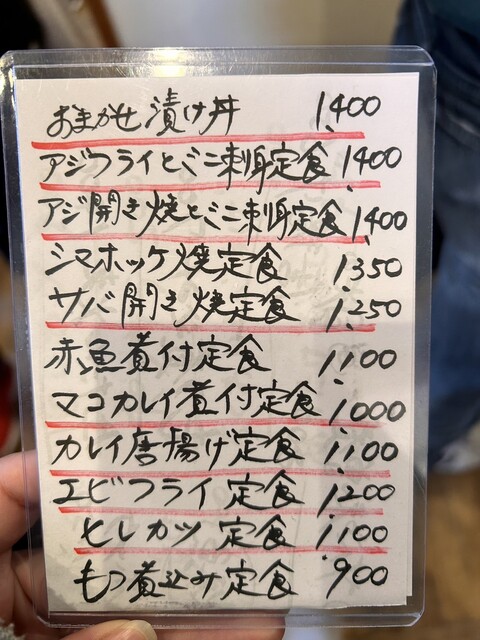 おまかせ漬け丼 1,400
アジフライとミニ刺身定食 1,400
アジ開き焼とミニ刺身定食 1,400
シマホッケ焼定食 1,350
サバ開き焼定食 1,250
赤魚煮付定食 1,100
マコカレイ煮付定食 1,000
カレイ唐揚げ定食 1,100
エビフライ定食 1,200
ヒレカツ定食 1,100
もつ煮込み定食 900